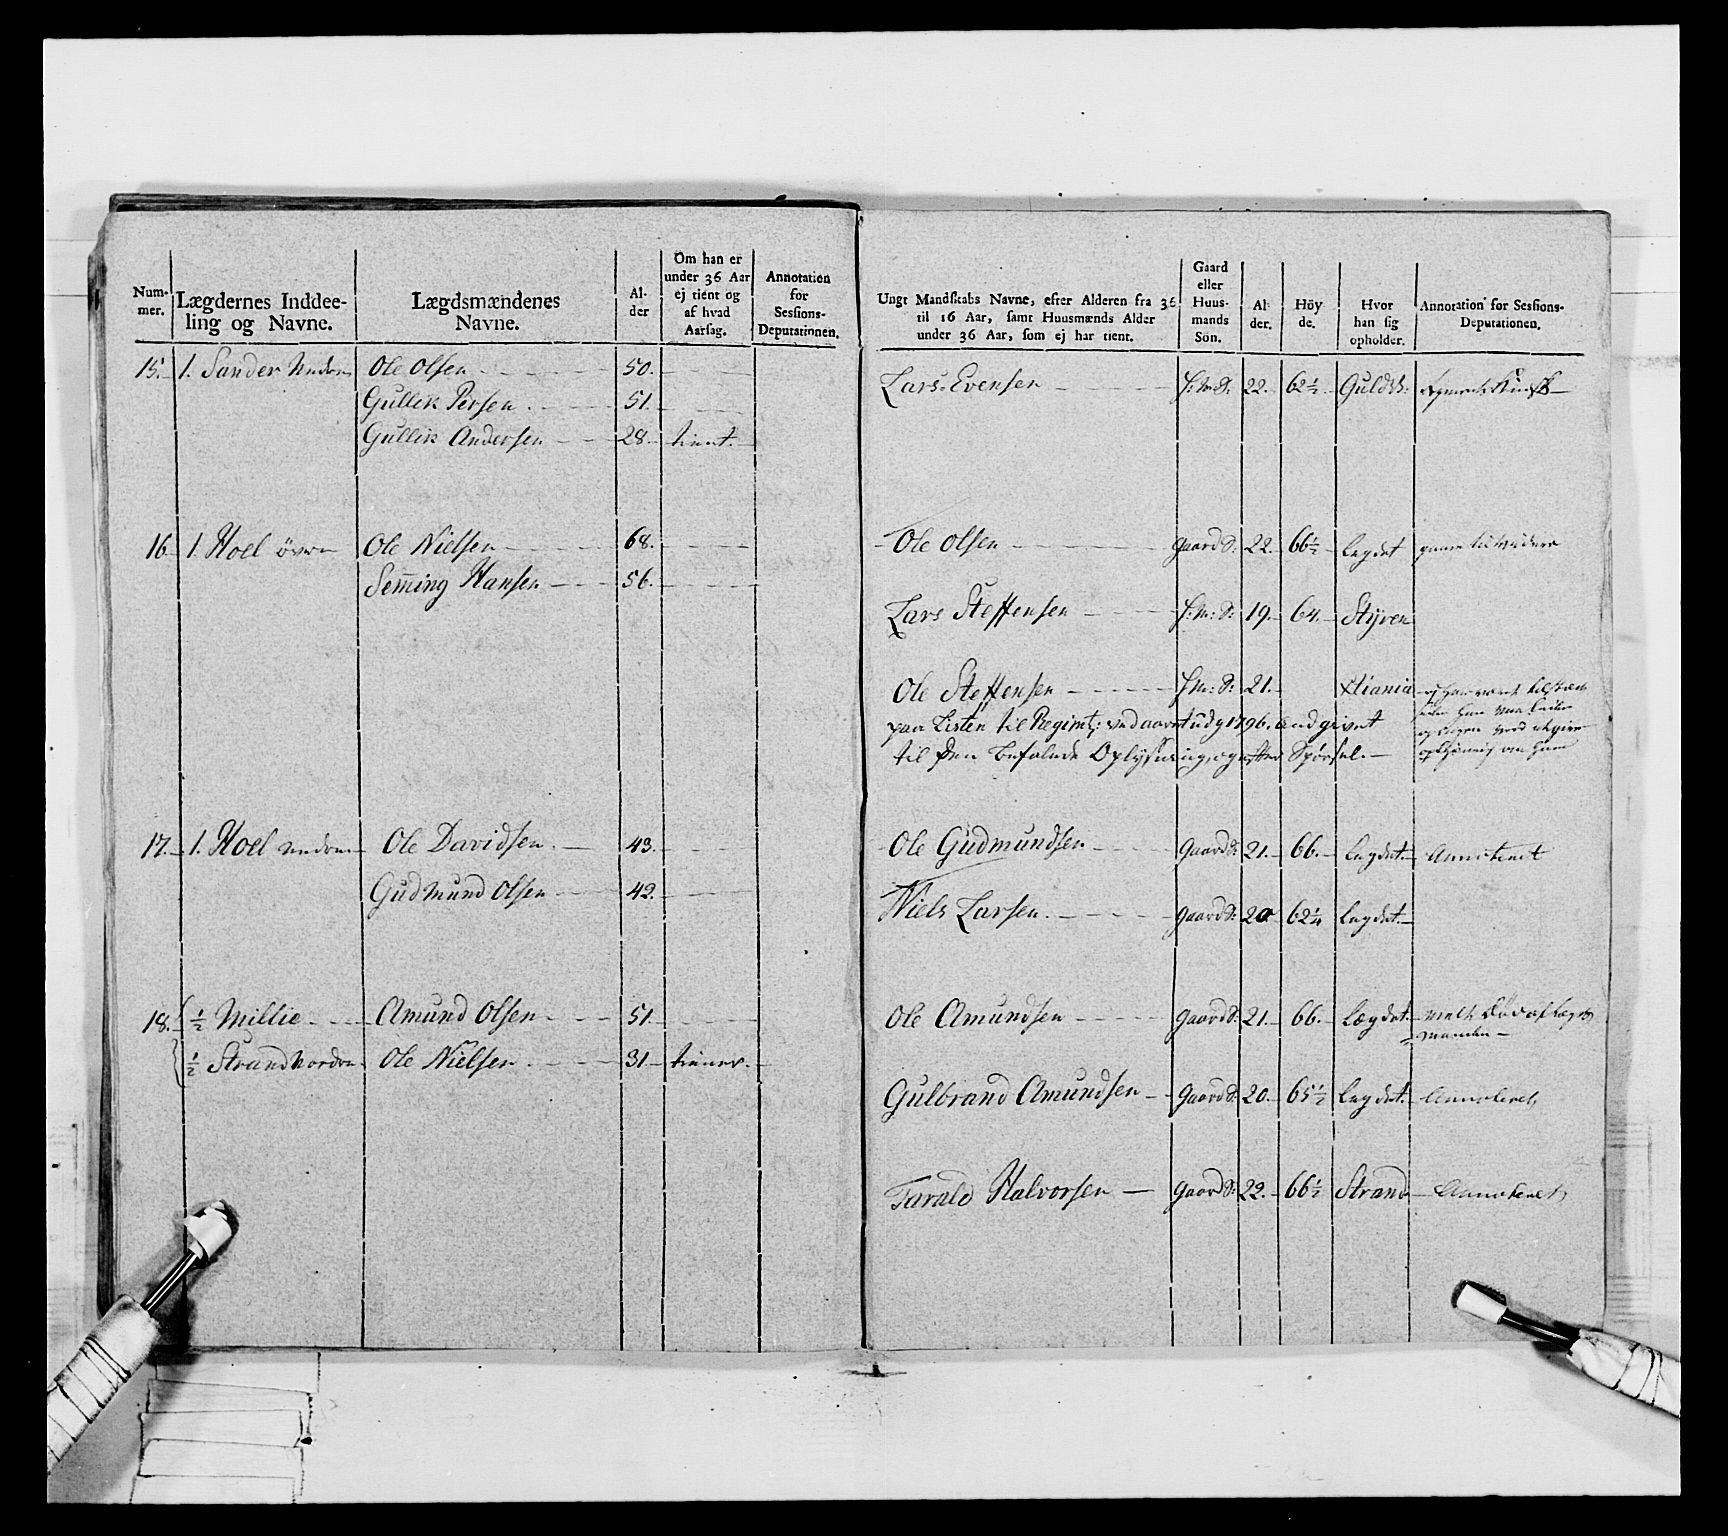 Num-
mer.
Lægdernes Inddee-
ling og Navne.
Lægdsmændenes
Navne.
Al-
der
Om han er
under 36 Aar
ej tient og
af hvad
Aarsag.
Annotation
for
Sessions-
Deputationen.
15. 1. Sander Nedre Ole Olsen 50.
Gullik Persen 51.
Gullik Andersen 28. tient.
16. 1. Hoel övre Ole Nielsen 68.
Seming Hansen 56.
17. 1. Hoel nedre Ole Davidsen 43.
Gudmund Olsen 42.
18. ½ Millie Amund Olsen 51.
½ Strand Nordre Ole Nielsen 31. tiener.
Ungt Mandskabs Navne, efter Alderen fra 36
til 16 Aar, samt Huusmænds Alder
under 36 Aar, som ej har tient.
Gaard
eller
Huus-
mands
Søn.
Al-
der.
Höy
de.
Hvor
han sig
opholder.
Annotation for Sessions-
Deputationen.
Lars Evensen H: M: S: 22. 62½ Guldsk:
Ole Olsen gaard S: 22. 66½ Legdet
Lars Steffensen H: m: S: 19. 64. Styren
Ole Steffensen H m: S: 21. Xtiania
paa Listen til Regimt: ved aaret udg 1796. andgivet
til den befalede Oplysning, og efter Spörsel.
Ole Gudmundsen Gaard S: 21. 66. Legdet. Annoteret
Niels Larsen. gaard S: 20 62¼ Legdet.
Ole Amundsen gaard S: 21. 66. Lægdet.
Gulbrand Amundsen gaard S: 20. 65½ Legdet. Annoteret
Tarald Halvorsen gaard S: 22. 66½ Strand Annoteret